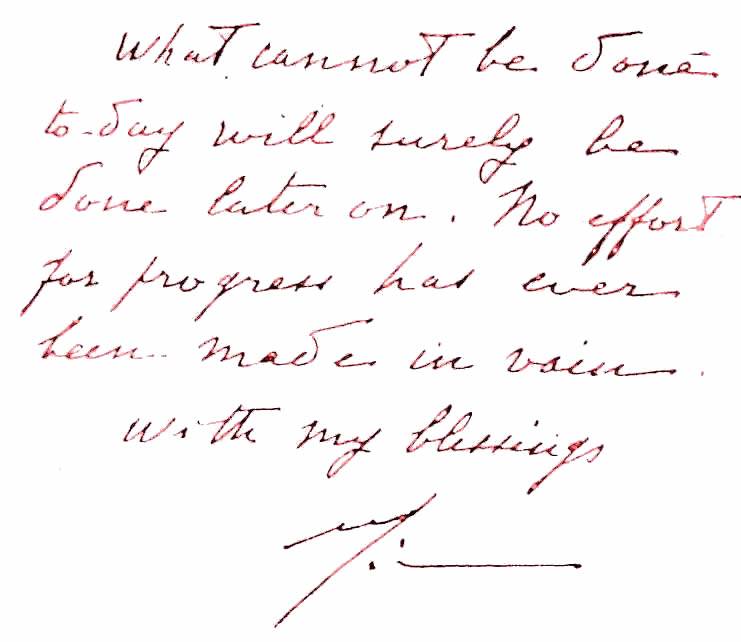 What cannot be done
to-day will surely be
done later on. No effort
for progress has ever
been made in vain.
With my blessings